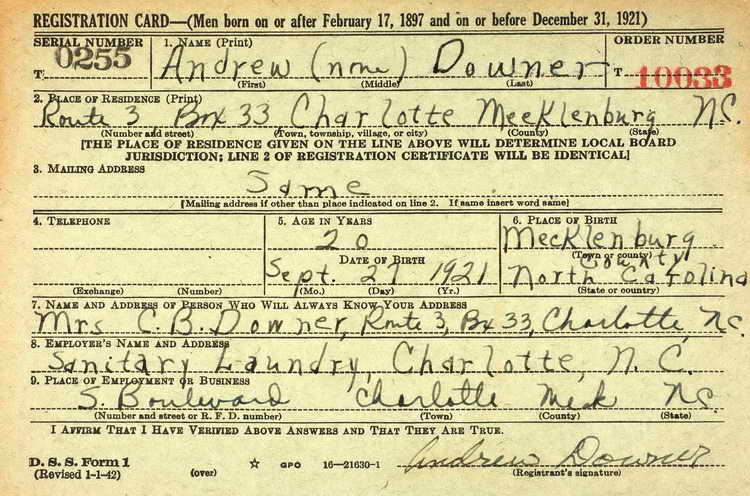 REGISTRATION CARD—(Men born on or after February 17, 1897 and on or before December 31, 1921)
SERIAL NUMBER 1. NAME (Print) ORDER NUMBER
T 0255 Andrew (none) Downer T 10033
(First) (Middle) (Last)
2. PLACE OF RESIDENCE (Print)
Route 3, Box 33 Charlotte Mecklenburg N.C.
(Number and street) (Town, township, village, or city) (County) (State)
[THE PLACE OF RESIDENCE GIVEN ON THE LINE ABOVE WILL DETERMINE LOCAL BOARD
JURISDICTION; LINE 2 OF REGISTRATION CERTIFICATE WILL BE IDENTICAL]
3. MAILING ADDRESS
Same
[Mailing address if other than place indicated on line 2. If same insert word same]
4. TELEPHONE 5. AGE IN YEARS 6. PLACE OF BIRTH
20 Mecklenburg
DATE OF BIRTH (Town or county) County
Sept. 27 1921 North Carolina
(Exchange) (Number) (Mo.) (Day) (Yr.) (State or country)
7. NAME AND ADDRESS OF PERSON WHO WILL ALWAYS KNOW YOUR ADDRESS
Mrs C. B. Downer, Route 3, Bx 33, Charlotte, N.C.
8. EMPLOYER'S NAME AND ADDRESS
Sanitary Laundry, Charlotte, N. C.
9. PLACE OF EMPLOYMENT OR BUSINESS
S. Boulevard Charlotte Meck N.C.
(Number and street or R. F. D. number) (Town) (County) (State)
I AFFIRM THAT I HAVE VERIFIED ABOVE ANSWERS AND THAT THEY ARE TRUE.
D. S. S. Form 1
(Revised 1-1-42) (over) ☆ GPO 16—21630-1 Andrew Downer
(Registrant's signature)